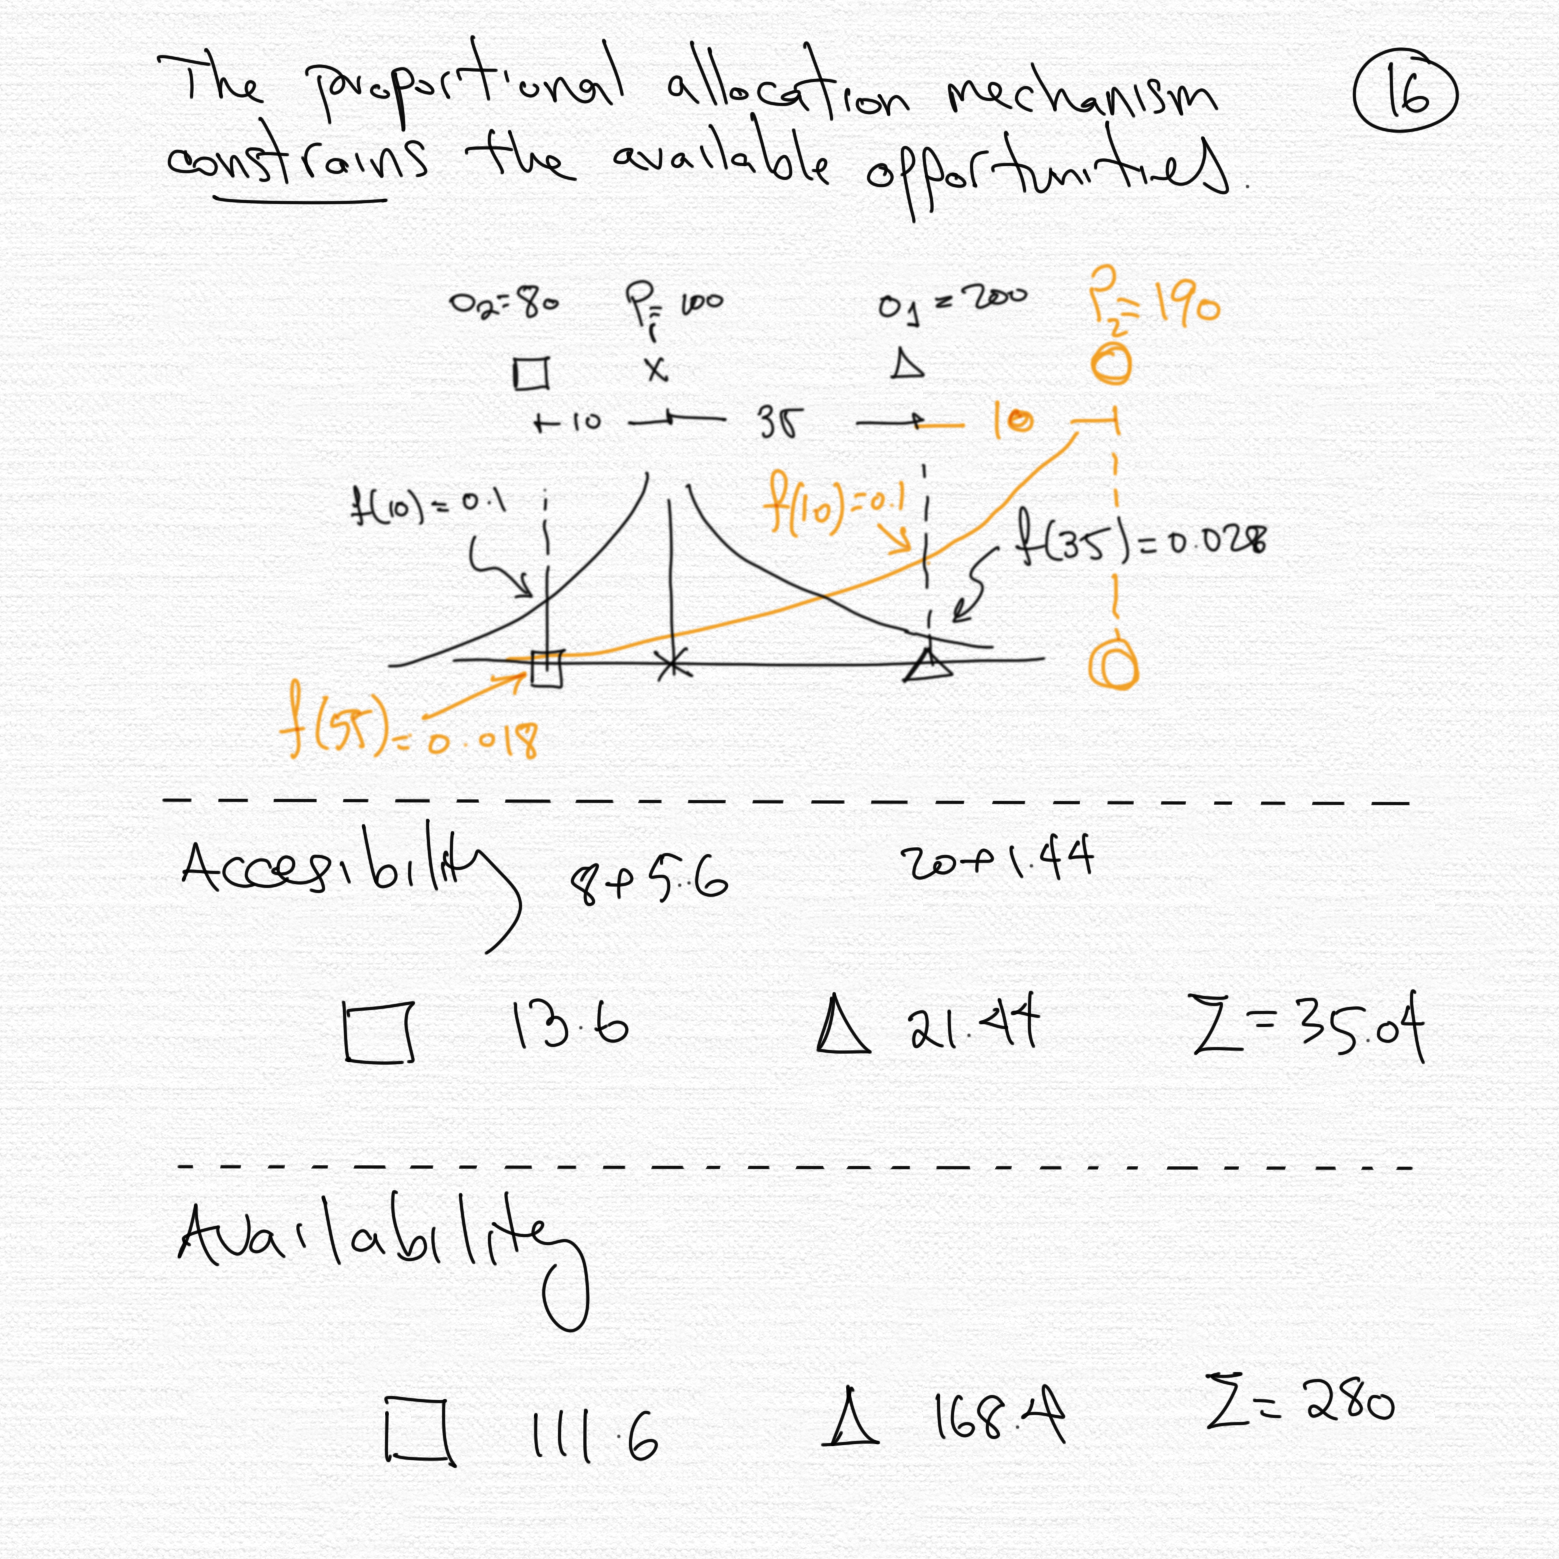 The proportional allocation mechanism
16
constrains the available opportunities.
O2=80 P1=100 O1=200 P2=190
10 35 10
f(10)=0.1 f(10)=0.1 f(35)=0.028
f(55)=0.018
Accesibility 8+5.6 20+1.44
13.6 21.44 Σ=35.04
Availability
111.6 168.4 Σ=280